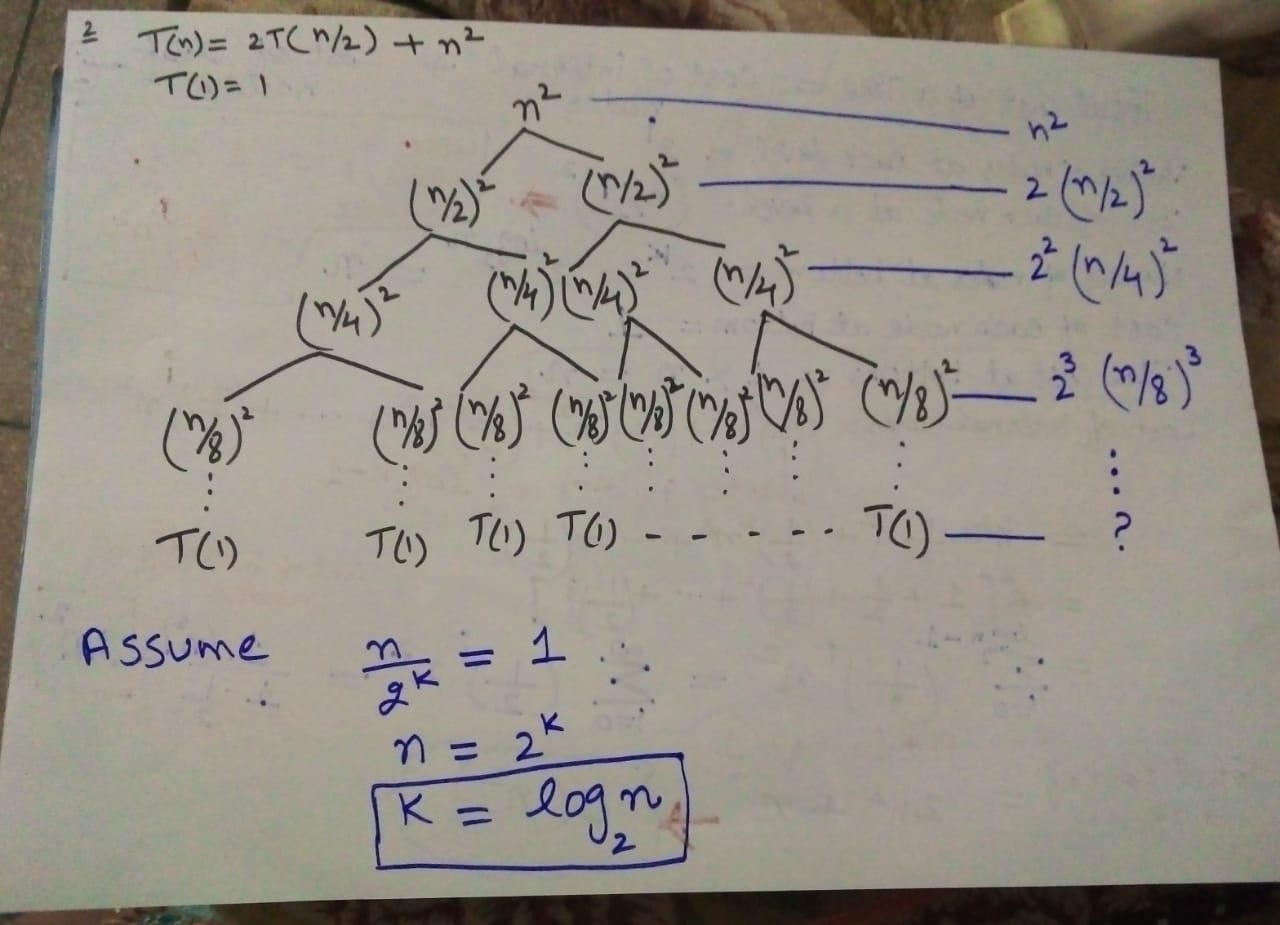 2 T(n) = 2T(n/2) + n²
T(1) = 1
n² n²
(n/2)² (n/2)² 2 (n/2)²
(n/4)² (n/4)² (n/4)² (n/4)² 2² (n/4)²
(n/8)² (n/8)² (n/8)² (n/8)² (n/8)² (n/8)² (n/8)² (n/8)² 2³ (n/8)³
T(1) T(1) T(1) T(1) - - - - - T(1) ?
Assume n/2ᴷ = 1
n = 2ᴷ
K = log₂n